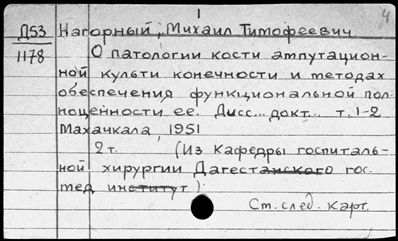 1
4
Д53 Нагорный, Михаил Тимофеевич
1178 О патологии кости ампутацион-
ной культи конечности и методах
обеспечения функциональной пол-
ноценности ее. Дисс... докт.. т. 1-2
Махачкала, 1951
2 т. (Из кафедры госпиталь-
ной хирургии Дагестанского гос
мед института)
Ст. след. карт.